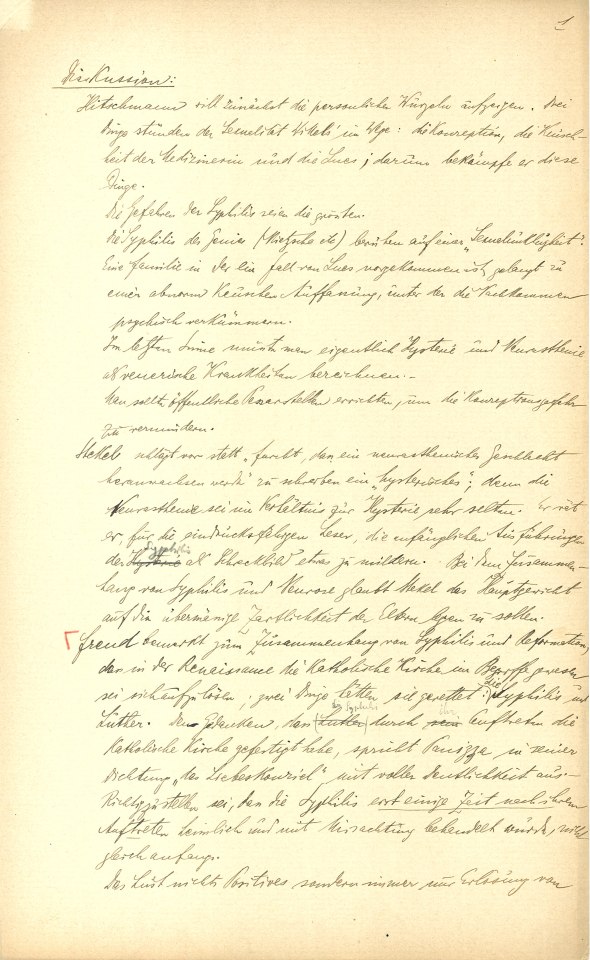 1
Diskussion:
Hitschmann will zunächst die persönlichen Wurzeln aufzeigen. Drei
Dinge stünden der Sexualität Wittels' im Wege: die Konzeption, die Keusch-
heit der Medizinerin und die Lues; darum bekämpfe er diese
Dinge.
Die Gefahren der Syphilis seien die grössten.
Die Syphilis der Genies (Nietzsche etc) beruhen auf einer „
Eine Familie in der ein Fall von Lues vorgekommen ist, gelangt zu
einer abnorm keuschen Auffassung, unter der die Nachkommen
psychisch verkümmern.
Im letzten Sinne müsste man eigentlich Hysterie und Neurasthenie
als venerische Krankheiten bezeichnen.-
Man sollte öffentliche errichten, um die Konzeptionsgefahr
zu vermindern.
Stekel schlägt vor statt „ , dass ein neurasthenisches Geschlecht
heranwachsen werde" zu schreiben ein „hysterisches"; denn die
Neurasthenie sei im Verhältnis zur Hysterie sehr selten. Er rät
er, für die eindrucksfähigen Leser, die anfänglichen Ausführungen
der Hysterie Syphilis als Schreckbild etwas zu mildern. Bei dem Zusammen-
hang von Syphilis und Neurose glaubt Stekel das Hauptgewicht
auf die übermässige Zärtlichkeit der Eltern legen zu sollen.
Freud bemerkt zum Zusammenhang von Syphilis und Reformation,
dass in der Renaissance die Katholische Kirche im Begriffe gewesen
sei sich aufzulösen; zwei Dinge hätten sie gerettet: die Syphilis und
Luther. Den Gedanken, dass (Luther) die Syphilis durch sein ihr Auftreten die
Katholische Kirche gefestigt habe, spricht Panizza in seiner
Dichtung „das Liebeskonzil" mit voller Deutlichkeit aus.-
Richtigzustellen sei, dass die Syphilis erst einige Zeit nach ihrem
Auftreten heimlich und mit Missachtung behandelt wurde, nicht
gleich anfangs.
Das Lust nichts Positives sondern immer nur Erlösung von